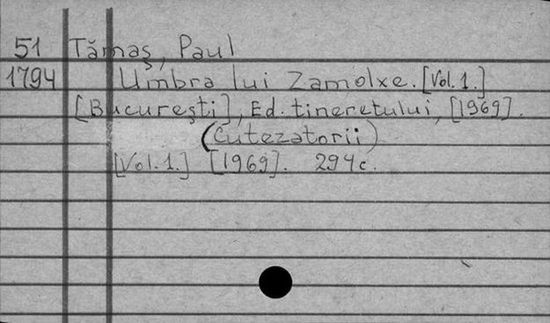 51 Tămaș, Paul
1794 Umbra lui Zamolxe. [Vol. 1.]
[București], Ed. tineretului, [1969].
(Cutezătorii)
[Vol. 1.] [1969]. 294 c.